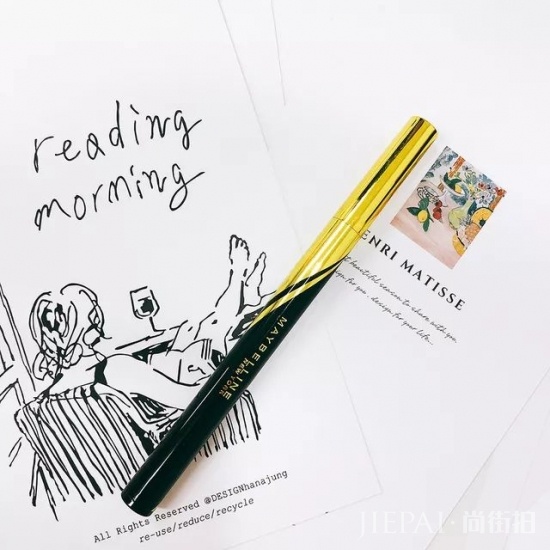 reading
morning
MAYBELLINE
NEW YORK
HENRI MATISSE
beautiful season to share with you.
design for you. design for your life..
All Rights Reserved @DESIGNhanajung
re-use/reduce/recycle
JIEPAI·尚街拍